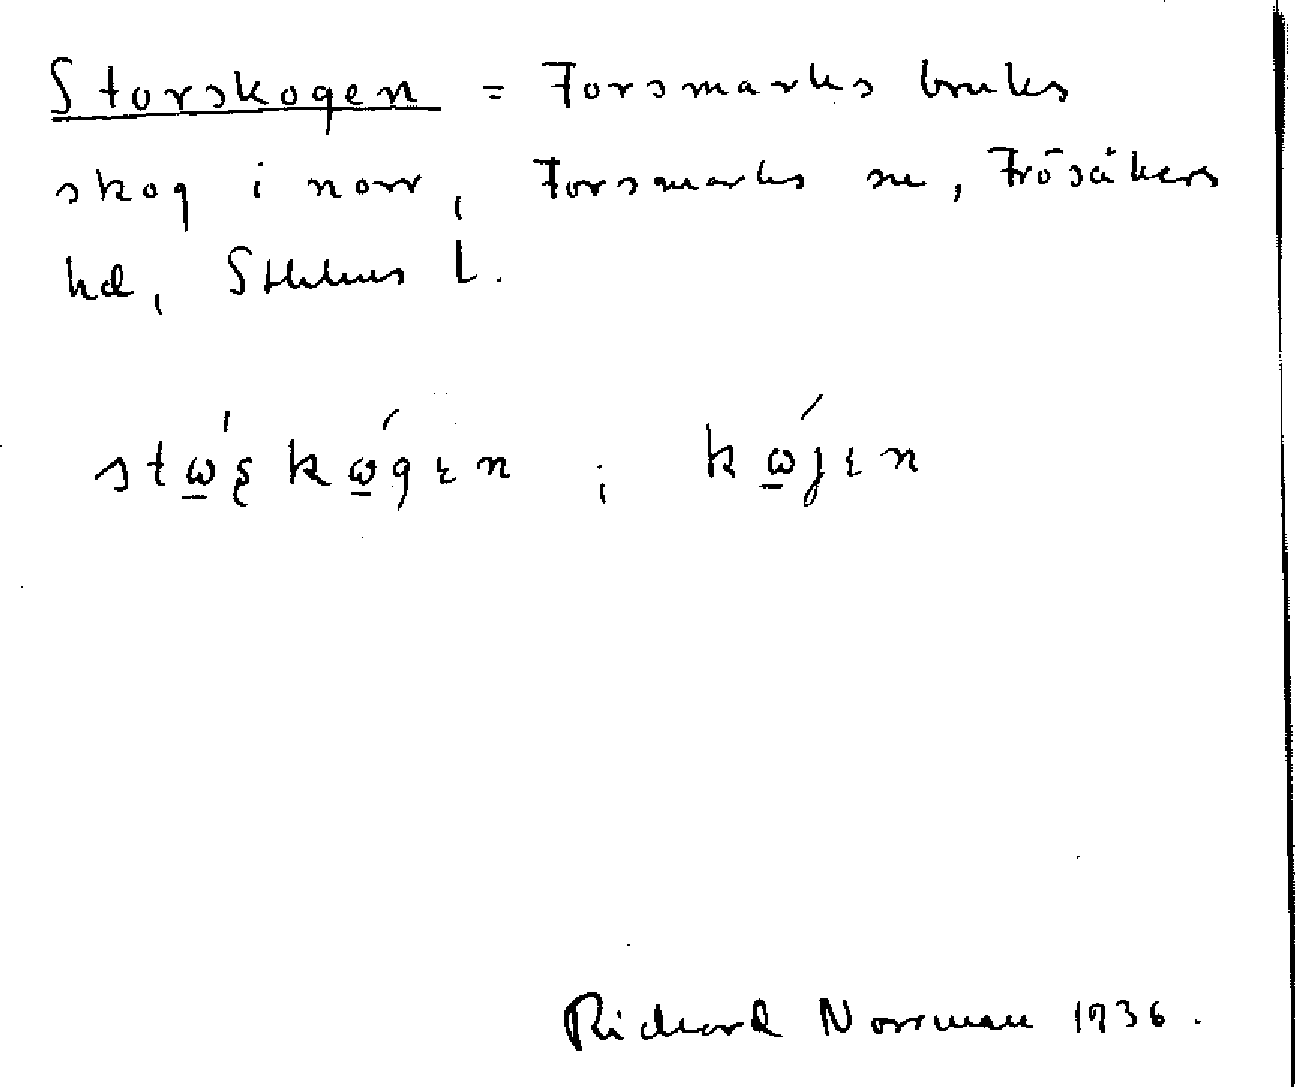 Storskogen = Forsmarks bruks
skog i norr, Forsmarks sn, Frösåkers
hd, Sthlms l.
Richard Norrman 1936.